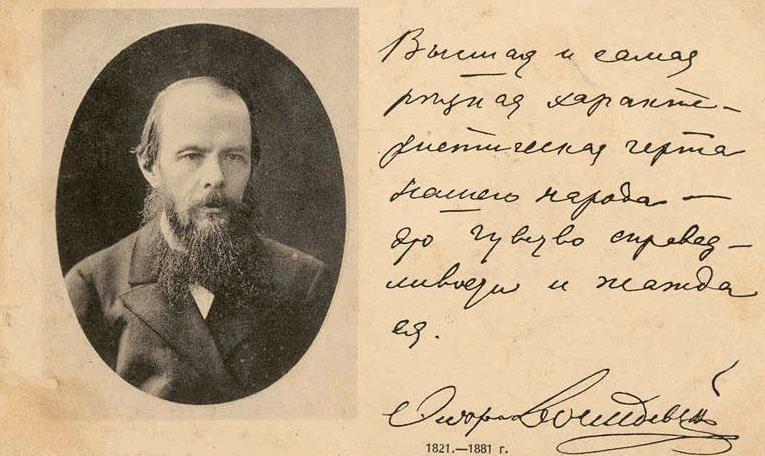 Высшая и самая
резкая характе-
ристическая черта
нашего народа —
это чувство справед-
ливости и жажда
ея.
Ѳедоръ Достоевскій
1821.—1881 г.